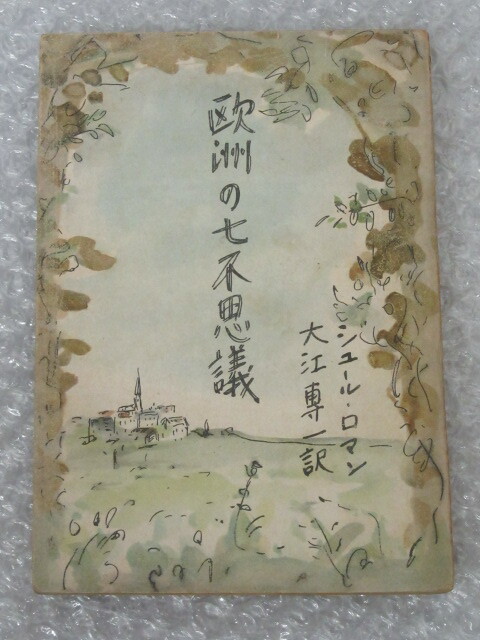 欧洲の七不思議
ジュール・ロマン
大江專一訳